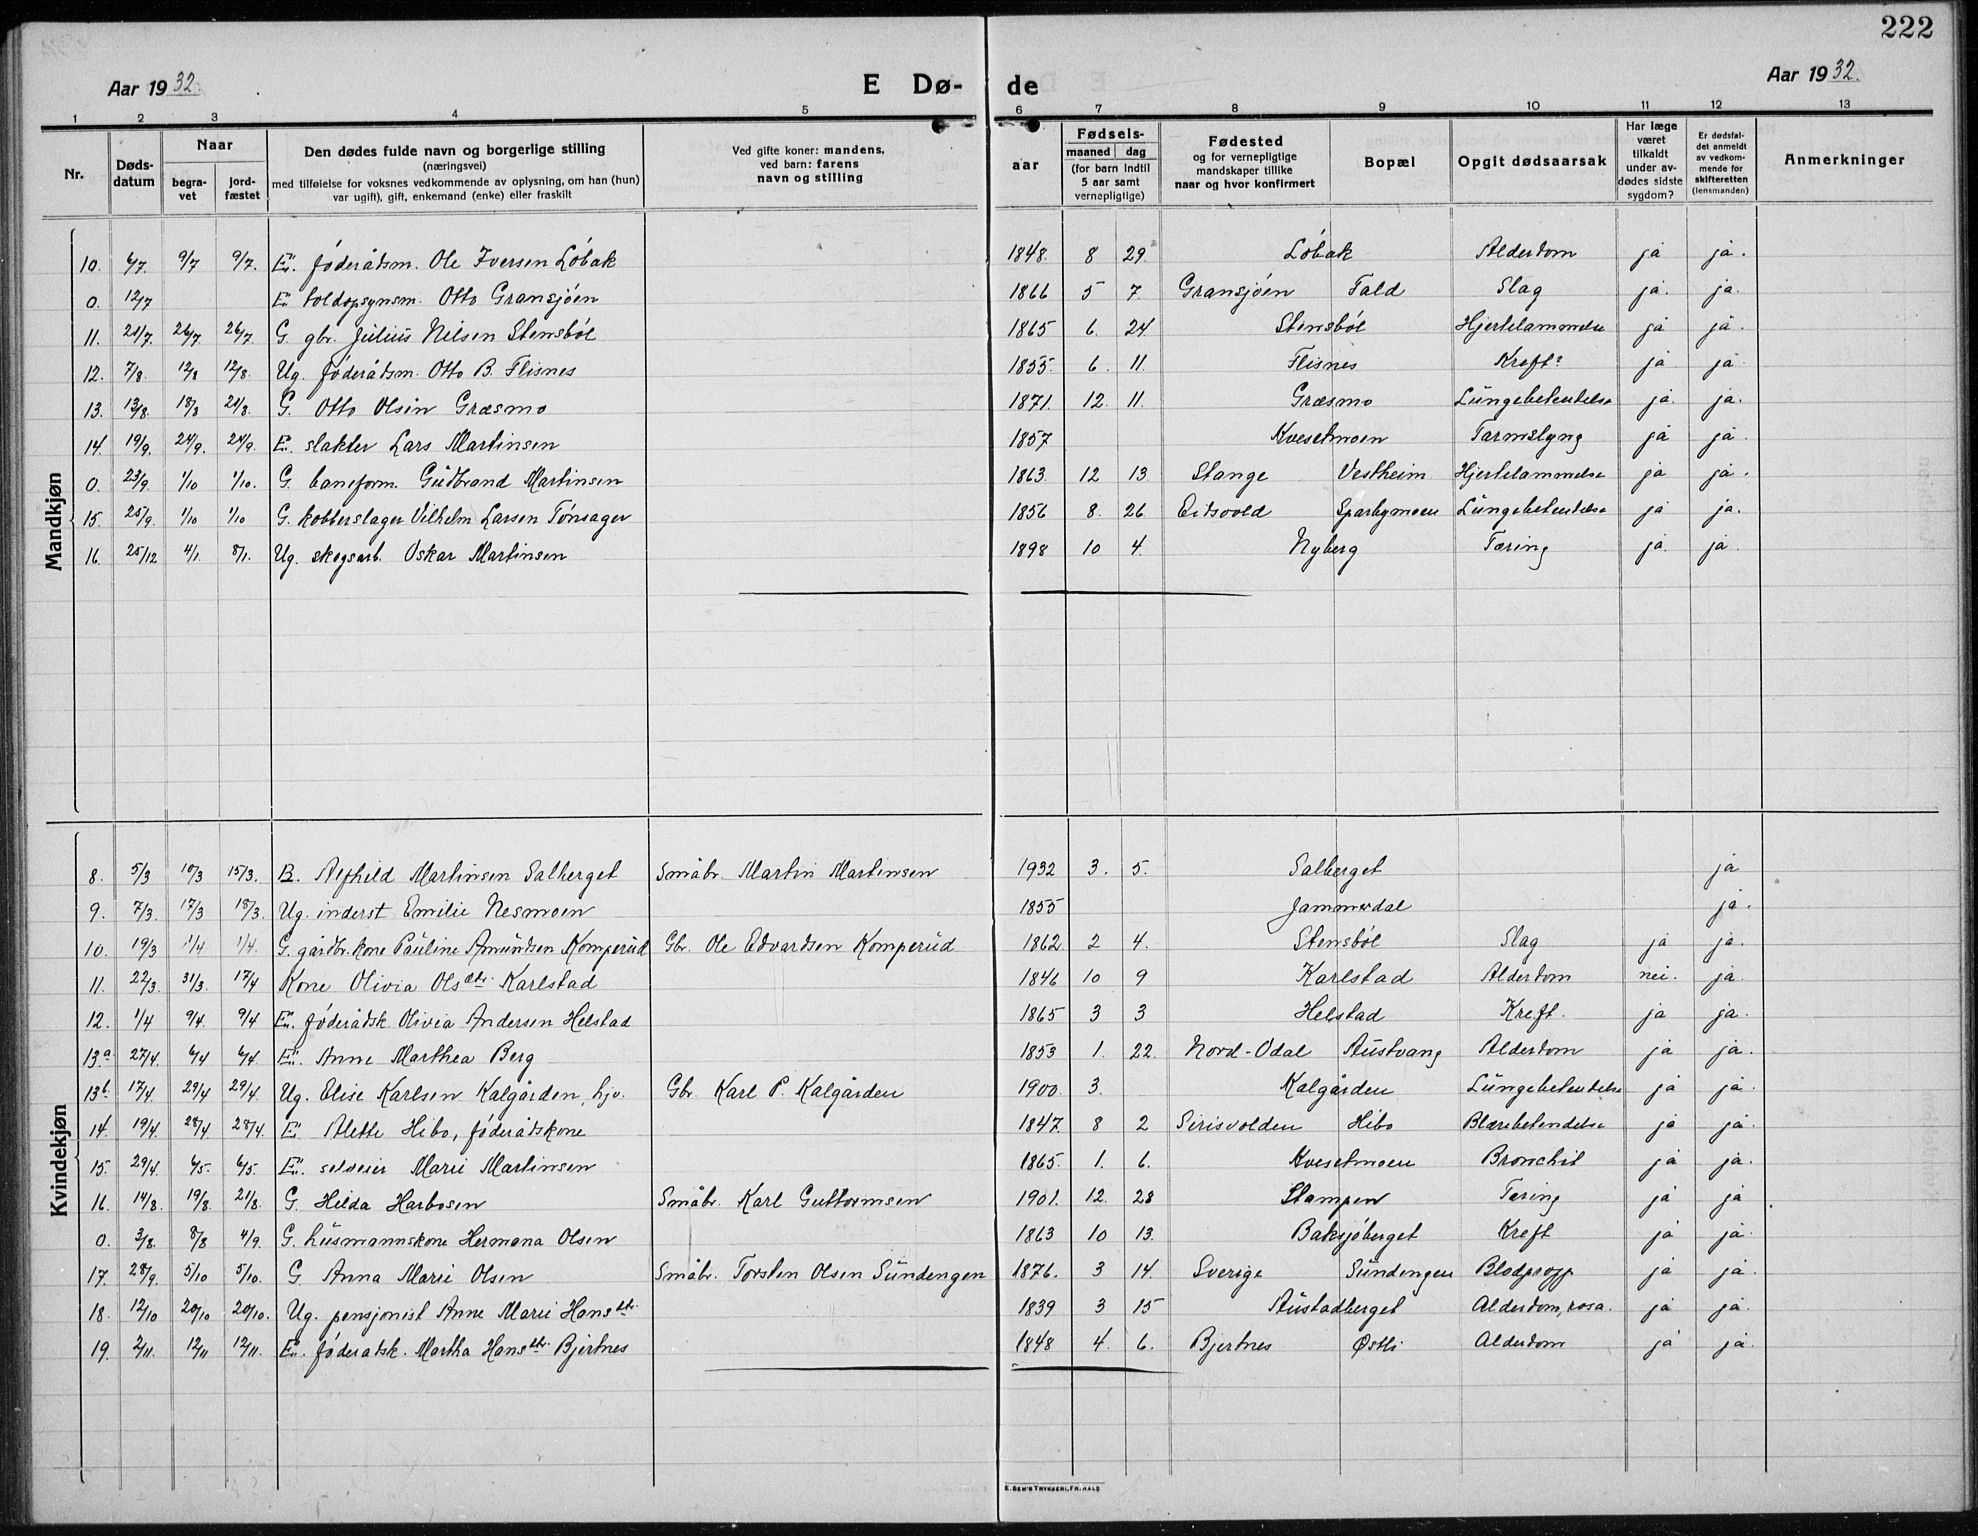 222
Aar 1932. E Dø- de Aar 1932.
1 2 3 4 5 6 7 8 9 10 11 12 13
Nr.
Døds-
datum
Naar
begra-
vet
jord-
fæstet
Den dødes fulde navn og borgerlige stilling
(næringsvei)
med tilføielse for voksnes vedkommende av oplysning, om han (hun)
var ugift), gift, enkemand (enke) eller fraskilt
Ved gifte koner: mandens,
ved barn: farens
navn og stilling
aar
Fødsels-
maaned dag
(for barn indtil
5 aar samt
vernepligtige)
Fødested
og for vernepligtige
mandskaper tillike
naar og hvor konfirmert
Bopæl
Opgit dødsaarsak
Har læge
været
tilkaldt
under av-
dødes sidste
sygdom?
Er dødsfal-
det anmeldt
av vedkom-
mende for
skifteretten
(lensmanden)
Anmerkninger
Mandkjøn
10. 6/7. 9/7 9/7. E. føderådsm. Ole Iversen Løbak 1848. 8 29. Løbak Alderdom ja ja.
0. 12/7 E. toldopsynsm. Otto Gransjøen 1866 5 7. Gransjøen Fald Slag ja. ja.
11. 21/7. 26/7. 26/7. G. gbr. Julius Nilsen Stensbøl 1865 6. 24 Stensbøl Hjertelammelse ja ja.
12. 7/8. 12/8 12/8. Ug. føderådsm. Otto B. Flisnes 1855. 6. 11. Flisnes Kreft? ja ja.
13. 13/8. 18/8 21/8. G. Otto Olsen Græsmo 1871. 12. 11. Græsmo Lungebetendelse ja. ja.
14. 19/9. 24/9. 24/9. E. slakter Lars Martinsen 1857 Kvesetmoen Tarmslyng ja ja.
0. 23/9. 1/10 1/10. G. baneform. Gudbrand Martinsen 1863. 12 13. Stange Vestheim Hjertelammelse ja ja.
15. 25/9. 1/10 1/10 G. kobberslager Vilhelm Larsen Tønsager 1856 8. 26. Eidsvold Sparbymoen Lungebetendelse ja ja.
16. 25/12 4/1. 8/1. Ug. skogsarb. Oskar Martinsen 1898 10 4. Nyberg Tæring ja. ja.
Kvindekjøn
8. 5/3 10/3 15/3. B. Alfhild Martinsen Salberget Småbr. Martin Martinsen 1932 3. 5. Salberget ja
9. 7/3. 17/3 18/3. Ug. inderst Emilie Nesmoen 1855 Jammerdal ja.
10. 19/3 1/4 1/4. G. gårdbr.kone Pauline Amundsen Komperud Gbr. Ole Edvardsen Komperud 1862 2 4. Stensbøl Slag ja ja.
11. 22/3. 31/3. 17/4 Kone Olivia Olsdtr. Karlstad 1846 10 9 Karlstad Alderdom nei. ja.
12. 1/4 9/4. 9/4 E. føderådsk. Olivia Andersen Helstad 1865 3 3 Helstad Kreft. ja ja.
13a. 27/4. 6/4 6/4. E. Anne Marthea Berg 1853 1. 22. Nord-Odal Austvang Alderdom ja ja.
13b. 17/4. 29/4 29/4. Ug. Elise Karlsen Kalgården, hjv. Gbr. Karl P. Kalgården 1900. 3. Kalgården Lungebetendelse ja ja.
14. 19/4. 28/4 28/4. E. Alette Hibo, føderådskone 1847. 8 2 Sirisvolden Hibo Blærebetendelse ja ja.
15. 29/4. 6/5. 6/5. E. selveier Marie Martinsen 1865. 1. 6. Kvesetmoen Bronchit ja ja.
16. 14/8. 19/8. 21/8. G. Hilda Harbosen Småbr. Karl Guttormsen 1901. 12. 28 Stampen Tæring ja ja
0. 3/8. 8/8 4/9. G. husmannskone Hermana Olsen 1863 10 13. Baksjøberget Kreft ja ja.
17. 28/9. 5/10 5/10. G. Anna Marie Olsen Småbr. Torsten Olsen Sundengen 1876. 3 14. Sverige Sundengen Blodpropp ja ja.
18. 12/10 20/10 20/10. Ug. pensjonist Anne Marie Hansdtr. 1839 3 15 Austadberget Alderdom, rosa. ja ja.
19. 2/11. 12/11 12/11. E. føderådsk. Martha Hansdtr. Bjertnes 1848 4. 6. Bjertnes Østli Alderdom ja ja.
E. SEM'S TRYKKERI, FR.HALD